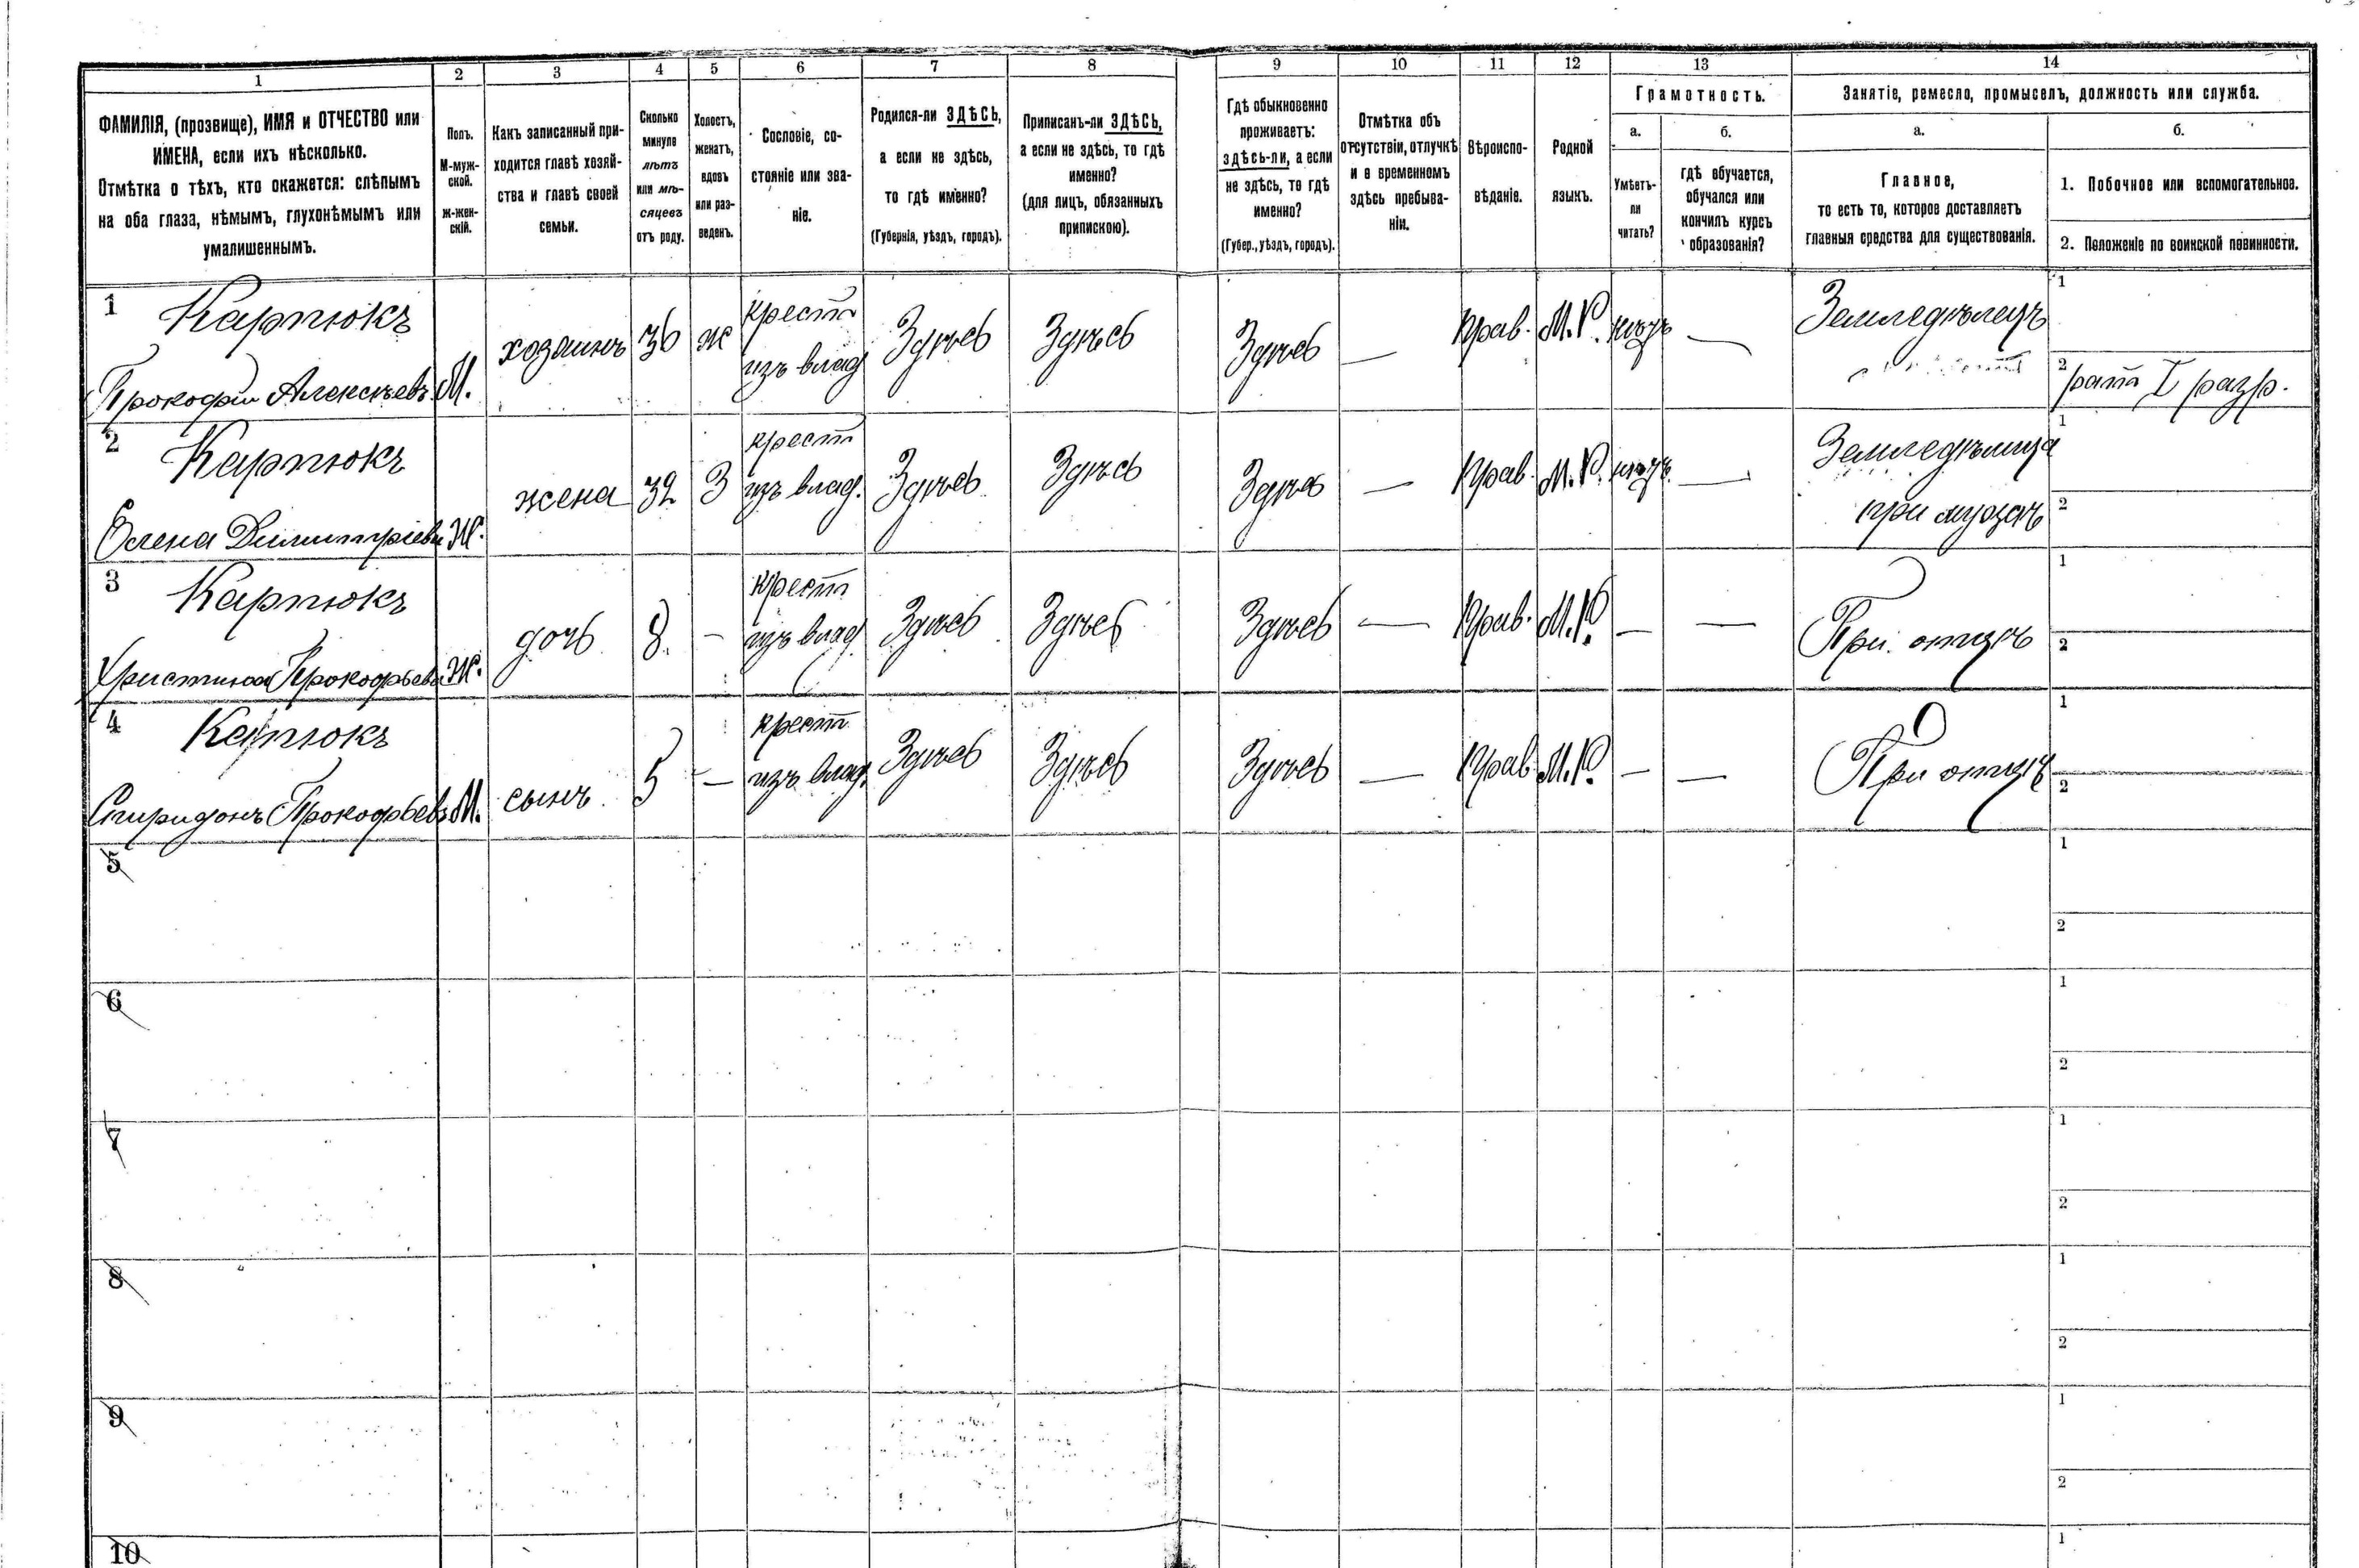 1 2 3 4 5 6 7 8 9 10 11 12 13 14
ФАМИЛІЯ, (прозвище), ИМЯ и ОТЧЕСТВО или
ИМЕНА, если ихъ нѣсколько.
Отмѣтка о тѣхъ, кто окажется: слѣпымъ
на оба глаза, нѣмымъ, глухонѣмымъ или
умалишеннымъ.
Полъ.
М-муж-
ской.
ж-жен-
скій.
Какъ записанный при-
ходится главѣ хозяй-
ства и главѣ своей
семьи.
Сколько
минуло
лѣтъ
или мѣ-
сяцевъ
отъ роду.
Холостъ,
женатъ,
вдовъ
или раз-
веденъ.
Сословіе, со-
стояніе или зва-
ніе.
Родился-ли ЗДѢСЬ,
а если не здѣсь,
то гдѣ именно?
(Губернія, уѣздъ, городъ).
Приписанъ-ли ЗДѢСЬ,
а если не здѣсь, то гдѣ
именно?
(для лицъ, обязанныхъ
припискою).
Гдѣ обыкновенно
проживаетъ:
здѣсь-ли, а если
не здѣсь, то гдѣ
именно?
(Губер., уѣздъ, городъ).
Отмѣтка объ
отсутствіи, отлучкѣ
и о временномъ
здѣсь пребыва-
ніи.
Вѣроиспо-
вѣданіе.
Родной
языкъ.
Грамотность.
а.
Умѣетъ-
ли
читать?
б.
гдѣ обучается,
обучался или
кончилъ курсъ
образованія?
Занятіе, ремесло, промыселъ, должность или служба.
а.
Главное,
то есть то, которое доставляетъ
главныя средства для существованія.
б.
1. Побочное или вспомогательное.
2. Положеніе по воинской повинности.
1 Карпюкъ
Прокофій Алексѣевъ М. хозаинъ 36 ж
крест
изъ влад
Здѣсь Здѣсь Здѣсь — Прав. М.Р. —
Земледѣлецъ
1
2 рат I разр.
2 Карпюкъ
Олена Димитріева Ж. жена 32 З
крест
изъ влад.
Здѣсь Здѣсь Здѣсь — Прав. М.Р. —
Земледѣлица
при мужѣ
1
2
3 Карпюкъ
Христина Прокофьева Ж. дочь 8. —
крест
изъ влад
Здѣсь Здѣсь Здѣсь — Прав. М.Р. — —
При отцѣ
1
2
4 Карпюкъ
Спиридонъ Прокофьевъ М. сынъ 5 —
крест
изъ влад.
Здѣсь Здѣсь Здѣсь — Прав М.Р. — —
При отцѣ
1
2
5
1
2
6
1
2
7
1
2
8
1
2
9
1
2
10
1